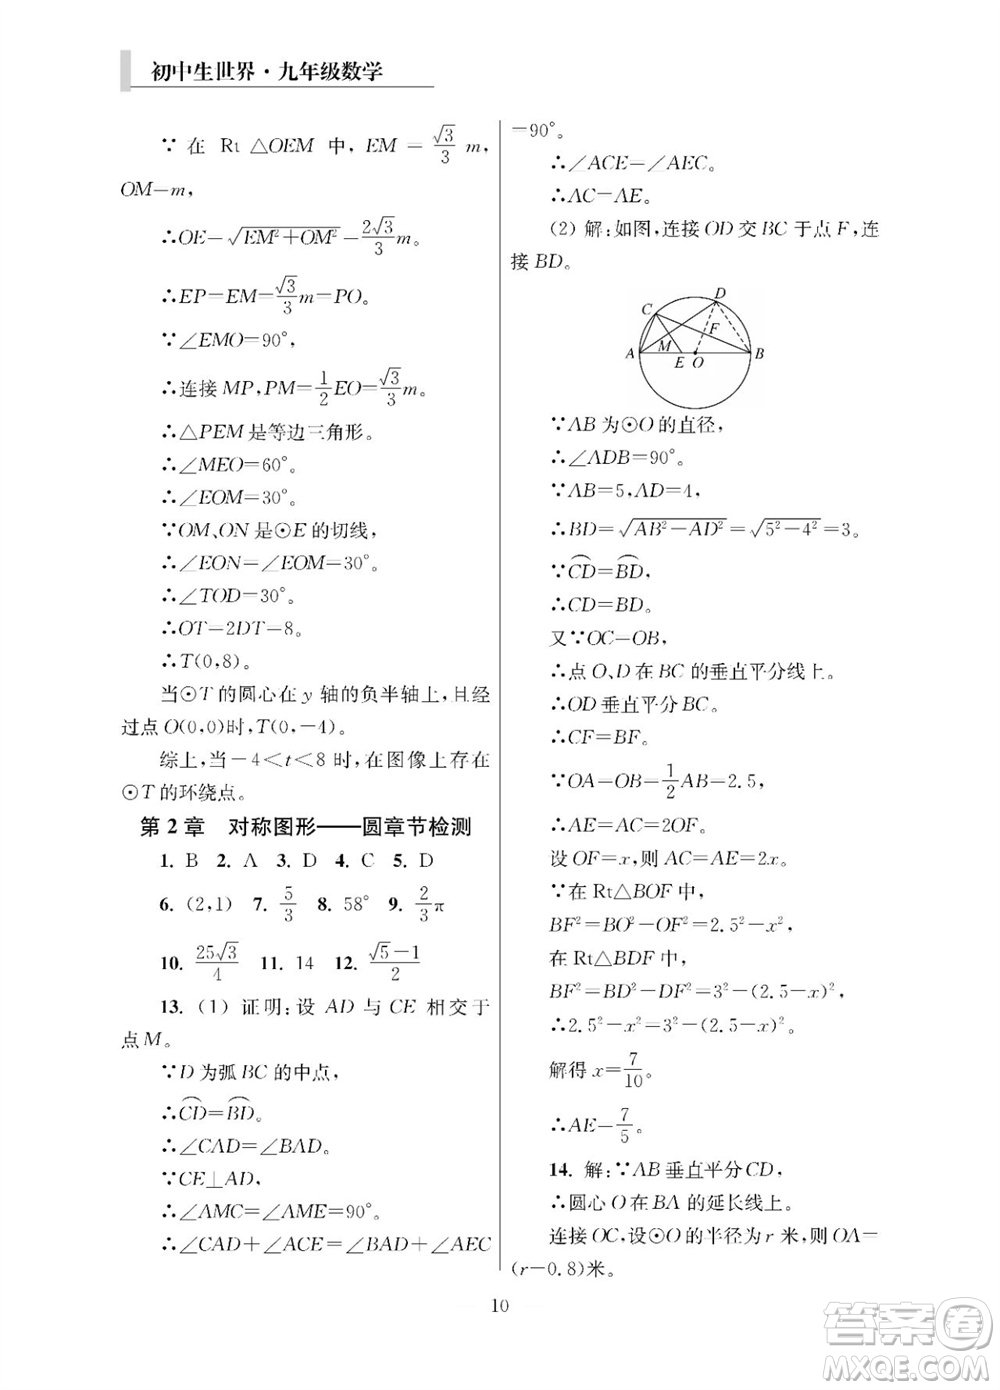 初中生世界·九年级数学
∵ 在 Rt △OEM 中, EM = √3/3 m,
OM=m,
∴OE=√(EM²+OM²)=2√3/3 m。
∴EP=EM=√3/3 m=PO。
∵∠EMO=90°,
∴连接 MP,PM=1/2 EO=√3/3 m。
∴△PEM 是等边三角形。
∴∠MEO=60°。
∴∠EOM=30°。
∵OM、ON 是⊙E 的切线,
∴∠EON=∠EOM=30°。
∴∠TOD=30°。
∴OT=2DT=8。
∴T(0,8)。
当⊙T 的圆心在 y 轴的负半轴上,且经
过点 O(0,0)时,T(0,-4)。
综上,当-4<t<8 时,在图像上存在
⊙T 的环绕点。
第 2 章 对称图形——圆章节检测
1. B 2. A 3. D 4. C 5. D
6. (2,1) 7. 5/3 8. 58° 9. 2/3 π
10. 25√3/4 11. 14 12. (√5-1)/2
13. (1) 证明:设 AD 与 CE 相交于
点 M。
∵D 为弧 BC 的中点,
∴⌒CD=⌒BD。
∴∠CAD=∠BAD。
∵CE⊥AD,
∴∠AMC=∠AME=90°。
∴∠CAD+∠ACE=∠BAD+∠AEC
=90°。
∴∠ACE=∠AEC。
∴AC=AE。
(2) 解:如图,连接 OD 交 BC 于点 F,连
接 BD。
D
C
F
A M E O B
∵AB 为⊙O 的直径,
∴∠ADB=90°。
∵AB=5,AD=4,
∴BD=√(AB²-AD²)=√(5²-4²)=3。
∵⌒CD=⌒BD,
∴CD=BD。
又∵OC=OB,
∴点 O、D 在 BC 的垂直平分线上。
∴OD 垂直平分 BC。
∴CF=BF。
∵OA=OB=1/2 AB=2.5,
∴AE=AC=2OF。
设 OF=x,则 AC=AE=2x。
∵在 Rt△BOF 中,
BF²=BO²-OF²=2.5²-x²,
在 Rt△BDF 中,
BF²=BD²-DF²=3²-(2.5-x)²,
∴2.5²-x²=3²-(2.5-x)²。
解得 x=7/10。
∴AE=7/5。
14. 解:∵AB 垂直平分 CD,
∴圆心 O 在 BA 的延长线上。
连接 OC,设⊙O 的半径为 r 米,则 OA=
(r-0.8)米。
10
答案圈
MXQE.COM